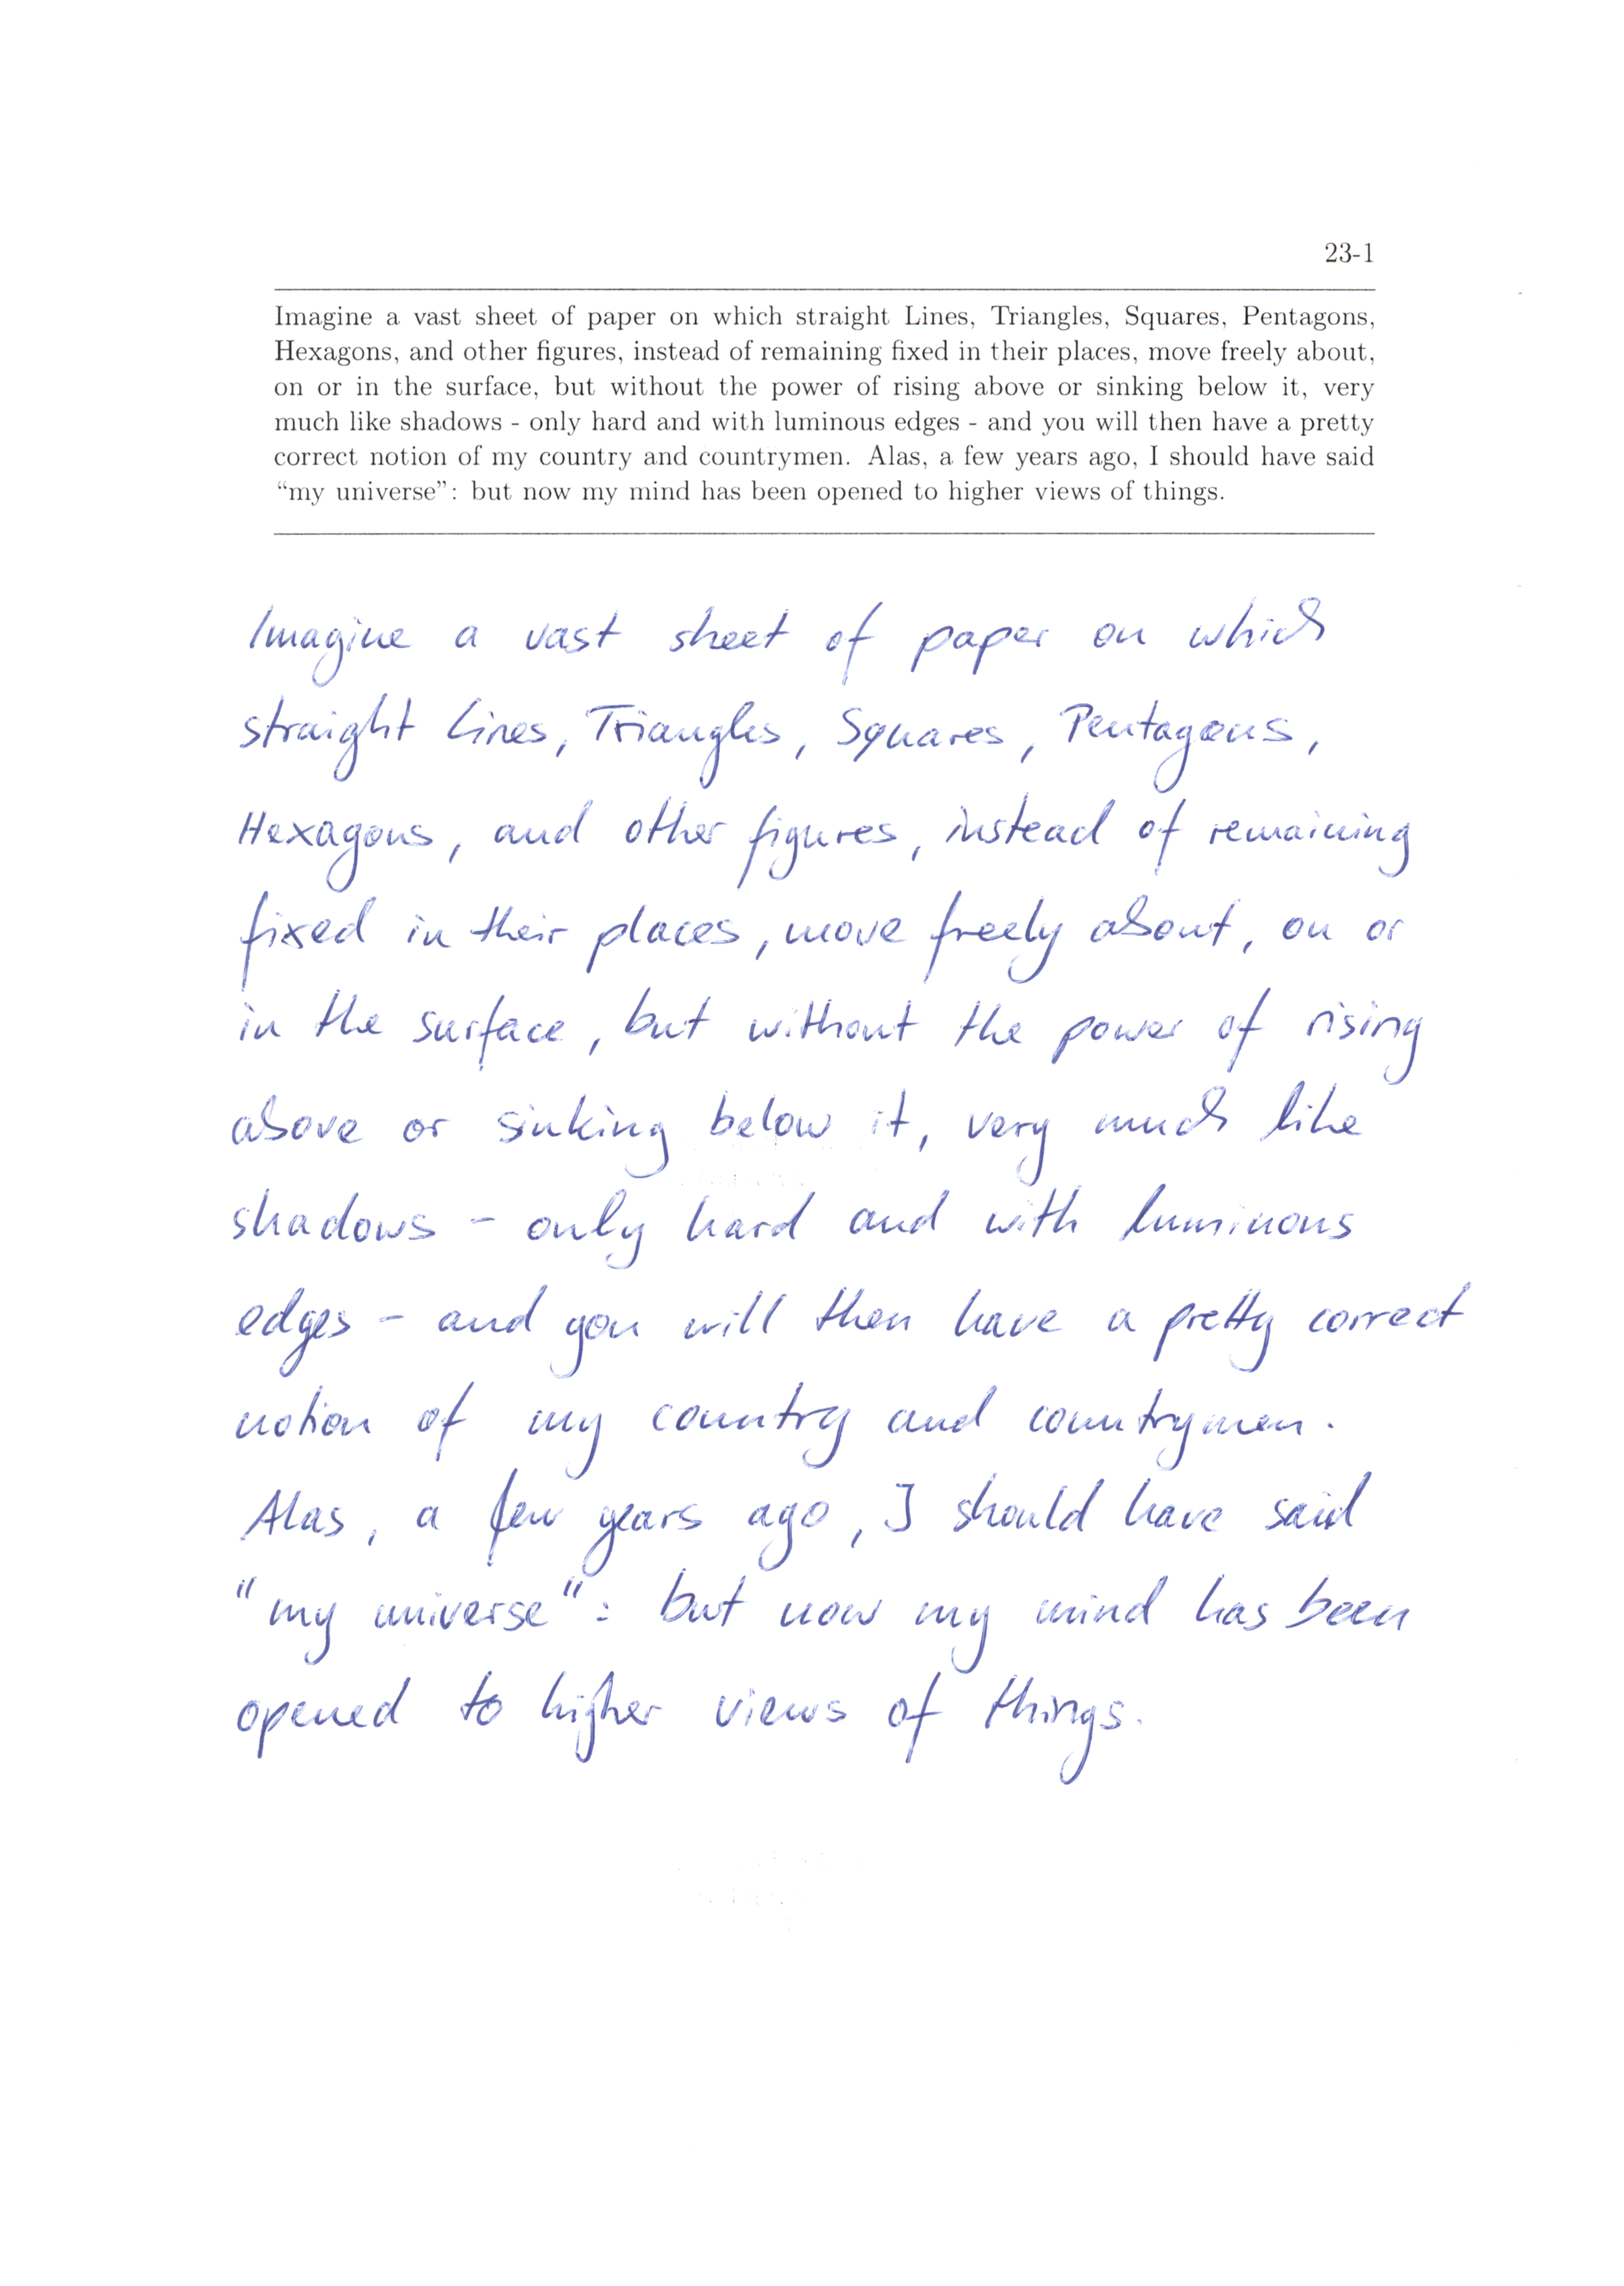 23-1
Imagine a vast sheet of paper on which straight Lines, Triangles, Squares, Pentagons,
Hexagons, and other figures, instead of remaining fixed in their places, move freely about,
on or in the surface, but without the power of rising above or sinking below it, very
much like shadows - only hard and with luminous edges - and you will then have a pretty
correct notion of my country and countrymen. Alas, a few years ago, I should have said
“my universe”: but now my mind has been opened to higher views of things.
Imagine a vast sheet of paper on which
straight Lines, Triangles, Squares, Pentagons,
Hexagons, and other figures, instead of remaining
fixed in their places, move freely about, on or
in the surface, but without the power of rising
above or sinking below it, very much like
shadows - only hard and with luminous
edges - and you will then have a pretty correct
notion of my country and countrymen.
Alas, a few years ago, I should have said
"my universe": but now my mind has been
opened to higher views of things.